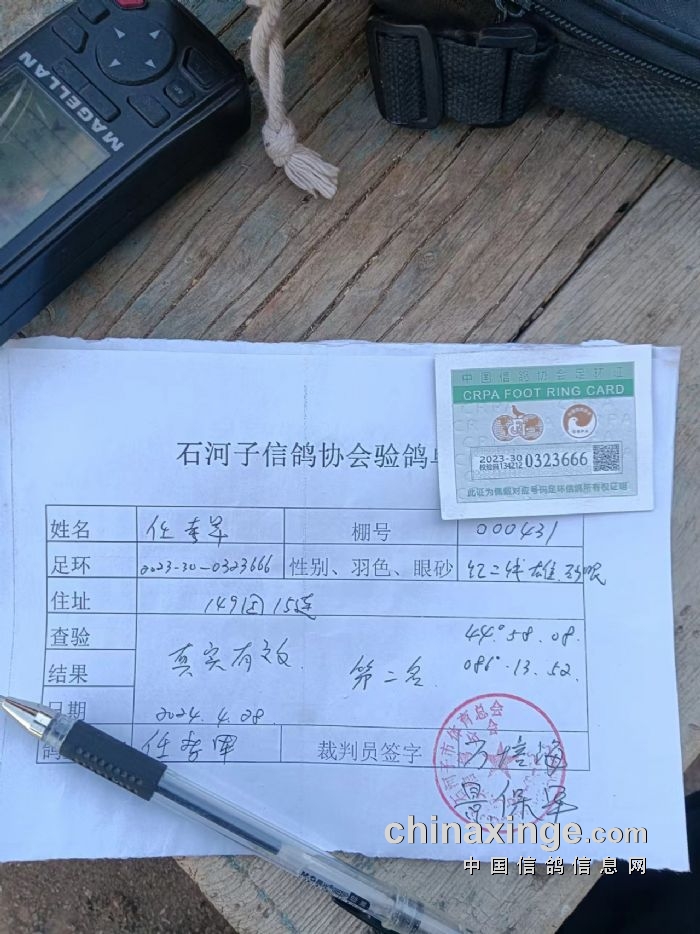 MAGELLAN
中国信鸽协会足环证
CRPA FOOT RING CARD
2023-30
校验网134212
0323666
此证为佩戴对应号码足环信鸽所有权证明
石河子信鸽协会验鸽
姓名 任 棚号 000431
足环 2023-30-0323666 性别、羽色、眼砂 红二线 雄 砂眼
住址 149团15连
查验 44°.58.08.
结果 真实有效. 第二名. 086°.13.52.
日期 2024.4.28.
鸽 任 裁判员签字
石河子市体育总会
景保军
chinaxinge.com
中国信鸽信息网